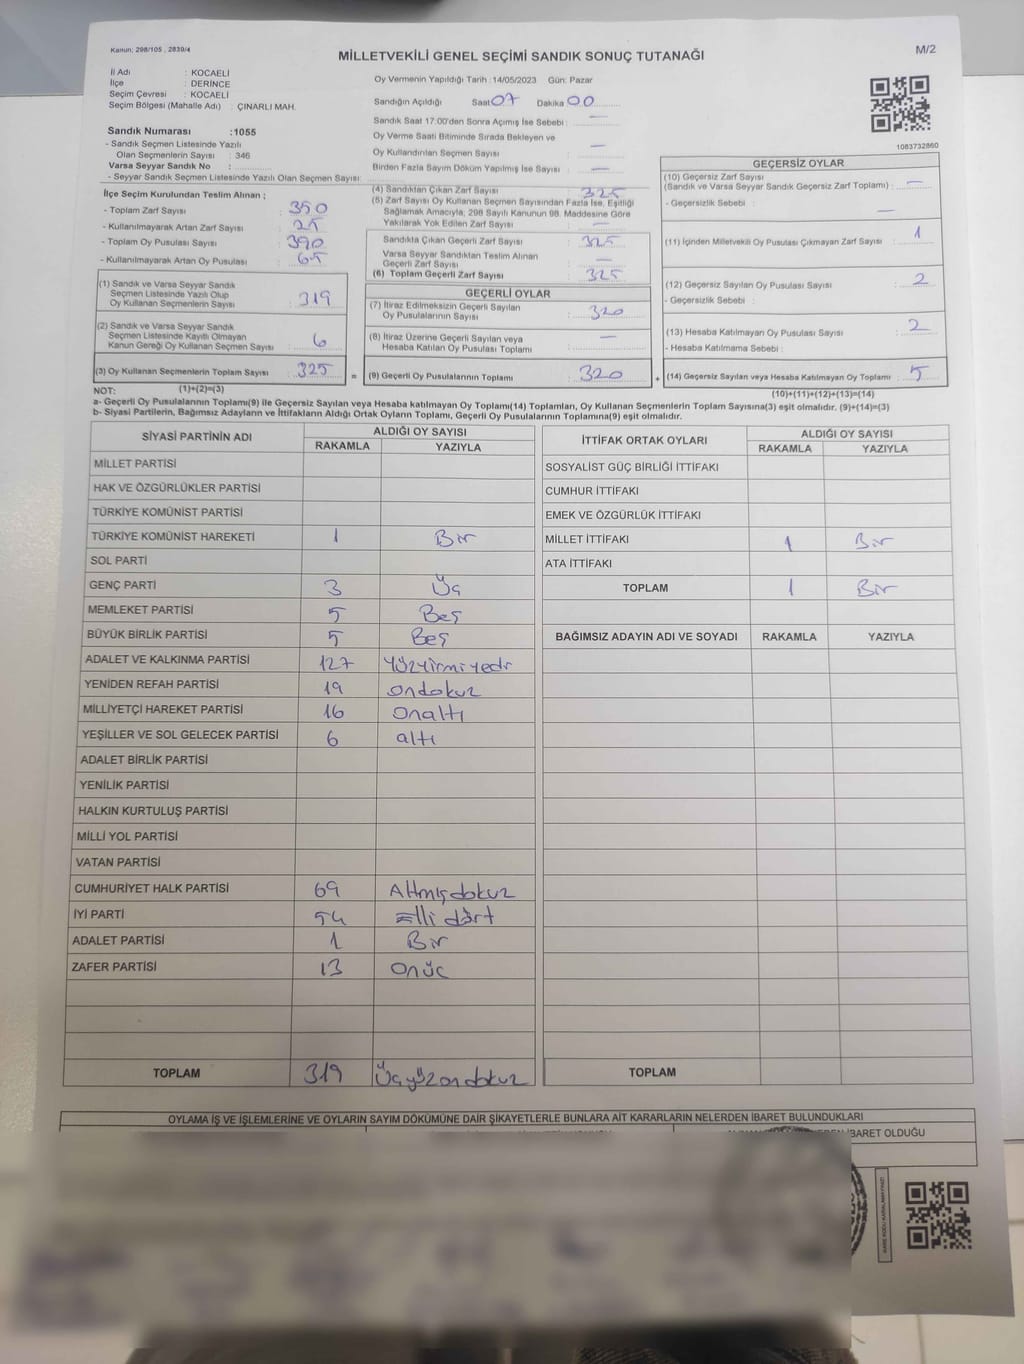 Kanun: 298/105 , 2839/4
MİLLETVEKİLİ GENEL SEÇİMİ SANDIK SONUÇ TUTANAĞI
M/2
İl Adı : KOCAELİ
İlçe : DERİNCE
Seçim Çevresi : KOCAELİ
Seçim Bölgesi (Mahalle Adı) : ÇINARLI MAH.
Sandık Numarası :1055
- Sandık Seçmen Listesinde Yazılı
Olan Seçmenlerin Sayısı : 346
Varsa Seyyar Sandık No :
- Seyyar Sandık Seçmen Listesinde Yazılı Olan Seçmen Sayısı:
İlçe Seçim Kurulundan Teslim Alınan ;
- Toplam Zarf Sayısı : 350
- Kullanılmayarak Artan Zarf Sayısı : 25
- Toplam Oy Pusulası Sayısı : 390
- Kullanılmayarak Artan Oy Pusulası : 65
(1) Sandık ve Varsa Seyyar Sandık
Seçmen Listesinde Yazılı Olup
Oy Kullanan Seçmenlerin Sayısı : 319
(2) Sandık ve Varsa Seyyar Sandık
Seçmen Listesinde Kayıtlı Olmayan
Kanun Gereği Oy Kullanan Seçmen Sayısı : 6
(3) Oy Kullanan Seçmenlerin Toplam Sayısı : 325 =
Oy Vermenin Yapıldığı Tarih :14/05/2023 Gün: Pazar
Sandığın Açıldığı Saat 07 Dakika 00
Sandık Saat 17:00'den Sonra Açımış İse Sebebi : —
Oy Verme Saati Bitiminde Sırada Bekleyen ve
Oy Kullandırılan Seçmen Sayısı : —
Birden Fazla Sayım Döküm Yapılmış İse Sayısı : —
(4) Sandıktan Çıkan Zarf Sayısı : 325
(5) Zarf Sayısı Oy Kullanan Seçmen Sayısından Fazla İse, Eşitliği
Sağlamak Amacıyla, 298 Sayılı Kanunun 98. Maddesine Göre
Yakılarak Yok Edilen Zarf Sayısı : —
Sandıkta Çıkan Geçerli Zarf Sayısı : 325
Varsa Seyyar Sandıktan Teslim Alınan
Geçerli Zarf Sayısı : —
(6) Toplam Geçerli Zarf Sayısı : 325
GEÇERLİ OYLAR
(7) İtiraz Edilmeksizin Geçerli Sayılan
Oy Pusulalarının Sayısı : 320
(8) İtiraz Üzerine Geçerli Sayılan veya
Hesaba Katılan Oy Pusulası Toplamı : —
(9) Geçerli Oy Pusulalarının Toplamı : 320 +
1083732860
GEÇERSİZ OYLAR
(10) Geçersiz Zarf Sayısı
(Sandık ve Varsa Seyyar Sandık Geçersiz Zarf Toplamı) : —
- Geçersizlik Sebebi : —
(11) İçinden Milletvekili Oy Pusulası Çıkmayan Zarf Sayısı : 1
(12) Geçersiz Sayılan Oy Pusulası Sayısı : 2
- Geçersizlik Sebebi :
(13) Hesaba Katılmayan Oy Pusulası Sayısı : 2
- Hesaba Katılmama Sebebi :
(14) Geçersiz Sayılan veya Hesaba Katılmayan Oy Toplamı : 5
NOT: (1)+(2)=(3)
(10)+(11)+(12)+(13)=(14)
a- Geçerli Oy Pusulalarının Toplamı(9) ile Geçersiz Sayılan veya Hesaba katılmayan Oy Toplamı(14) Toplamları, Oy Kullanan Seçmenlerin Toplam Sayısına(3) eşit olmalıdır. (9)+(14)=(3)
b- Siyasi Partilerin, Bağımsız Adayların ve İttifakların Aldığı Ortak Oyların Toplamı, Geçerli Oy Pusulalarının Toplamına(9) eşit olmalıdır.
SİYASİ PARTİNİN ADI ALDIĞI OY SAYISI
RAKAMLA YAZIYLA
MİLLET PARTİSİ
HAK VE ÖZGÜRLÜKLER PARTİSİ
TÜRKİYE KOMÜNİST PARTİSİ
TÜRKİYE KOMÜNİST HAREKETİ 1 Bir
SOL PARTİ
GENÇ PARTİ 3 Üç
MEMLEKET PARTİSİ 5 Beş
BÜYÜK BİRLİK PARTİSİ 5 Beş
ADALET VE KALKINMA PARTİSİ 127 Yüzyirmiyedi
YENİDEN REFAH PARTİSİ 19 ondokuz
MİLLİYETÇİ HAREKET PARTİSİ 16 Onaltı
YEŞİLLER VE SOL GELECEK PARTİSİ 6 altı
ADALET BİRLİK PARTİSİ
YENİLİK PARTİSİ
HALKIN KURTULUŞ PARTİSİ
MİLLİ YOL PARTİSİ
VATAN PARTİSİ
CUMHURİYET HALK PARTİSİ 69 Altmışdokuz
İYİ PARTİ 54 Elli dört
ADALET PARTİSİ 1 Bir
ZAFER PARTİSİ 13 Onüç
TOPLAM 319 Üçyüzondokuz
İTTİFAK ORTAK OYLARI ALDIĞI OY SAYISI
RAKAMLA YAZIYLA
SOSYALİST GÜÇ BİRLİĞİ İTTİFAKI
CUMHUR İTTİFAKI
EMEK VE ÖZGÜRLÜK İTTİFAKI
MİLLET İTTİFAKI 1 Bir
ATA İTTİFAKI
TOPLAM 1 Bir
BAĞIMSIZ ADAYIN ADI VE SOYADI RAKAMLA YAZIYLA
TOPLAM
OYLAMA İŞ VE İŞLEMLERİNE VE OYLARIN SAYIM DÖKÜMÜNE DAİR ŞİKAYETLERLE BUNLARA AİT KARARLARIN NELERDEN İBARET BULUNDUKLARI
İBARET OLDUĞU